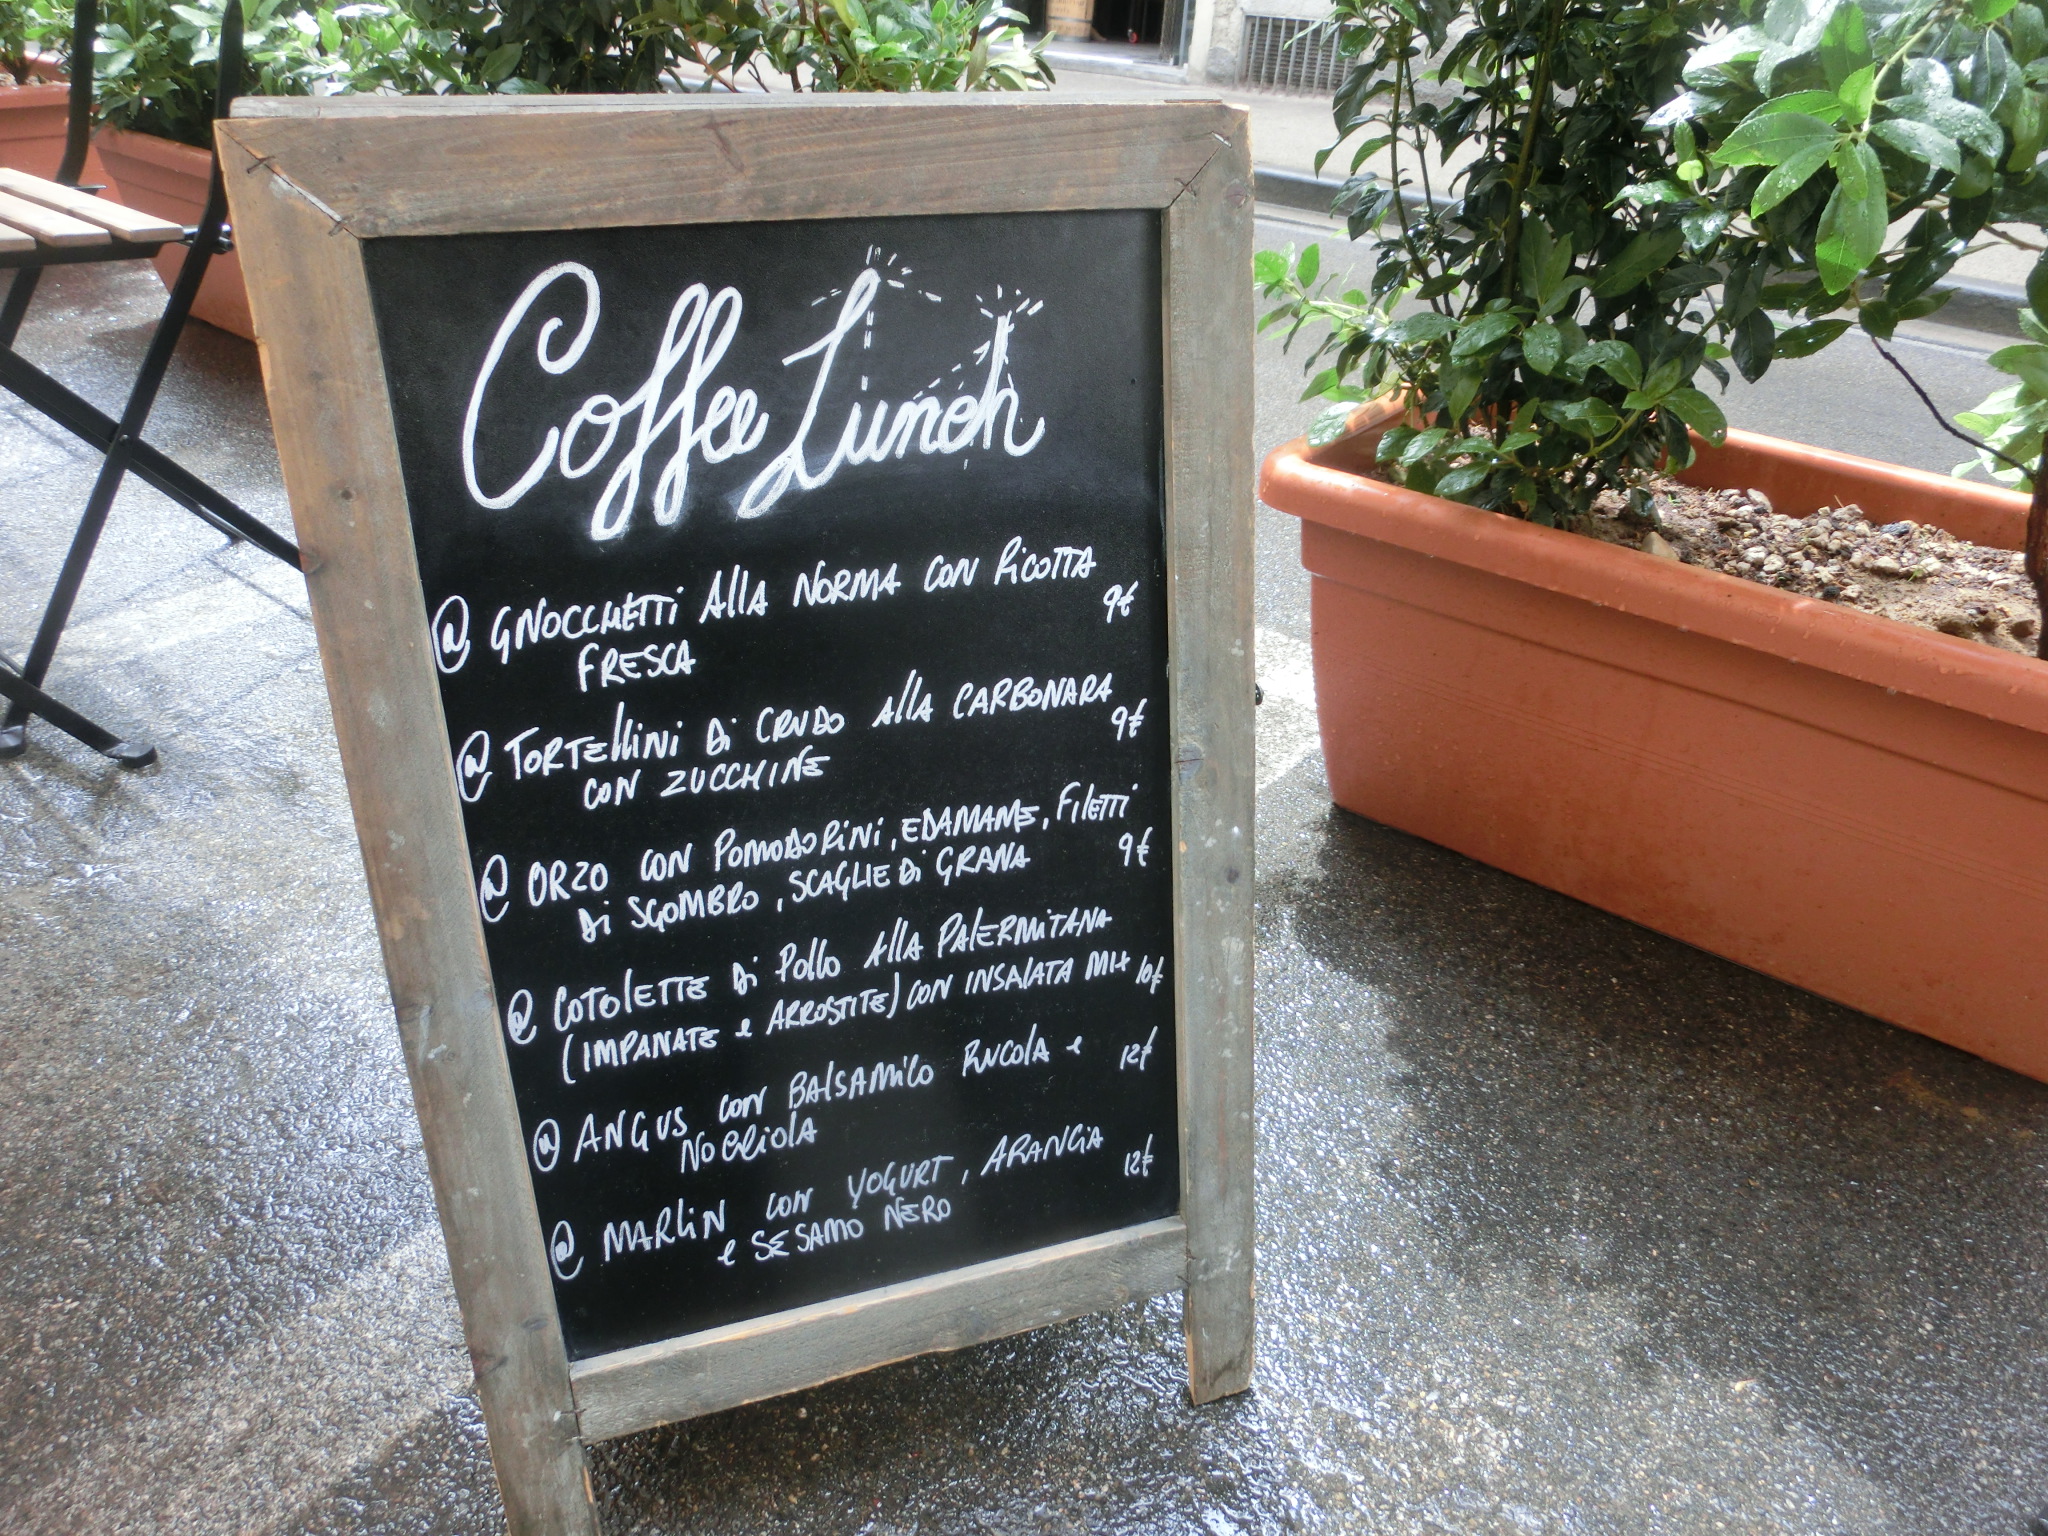 Coffee Lunch
@ GNOCCHETTI AllA NORMA CON RICOTTA
FRESCA 9€
@ TORTELLINI DI CRUDO AllA CARBONARA
CON ZUCCHINE 9€
@ ORZO CON POMODORINI, EDAMAME, FILETTI
DI SGOMBRO, SCAGLIE DI GRANA 9€
@ COTOLETTE DI POLLO ALLA PALERMITANA
(IMPANATE e ARROSTITE) CON INSALATA MIX 10€
@ ANGUS CON BALSAMICO RUCOLA e 12€
NOCCIOLA
@ MARLIN CON YOGURT, ARANCIA 12€
e SESAMO NERO